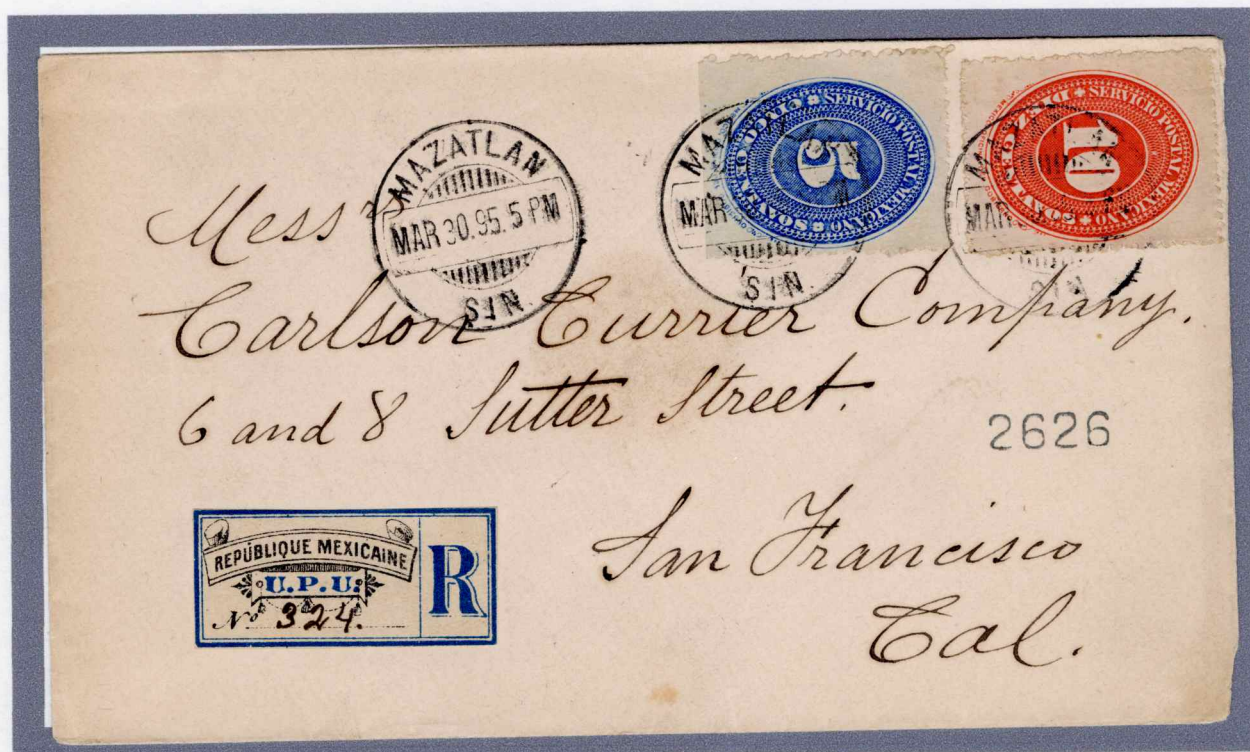 MAZATLAN
MAR 30.95. 5 PM
SIN
MAZ
MAR
SIN
SERVICIO POSTAL MEXICANO
CINCO CENTAVOS
5
MAZ
MAR
SIN
SERVICIO POSTAL MEXICANO
10
Mess
Carlson Currier Company.
6 and 8 Sutter Street.
2626
San Francisco
Cal.
REPUBLIQUE MEXICAINE
U.P.U.
No 324.
R